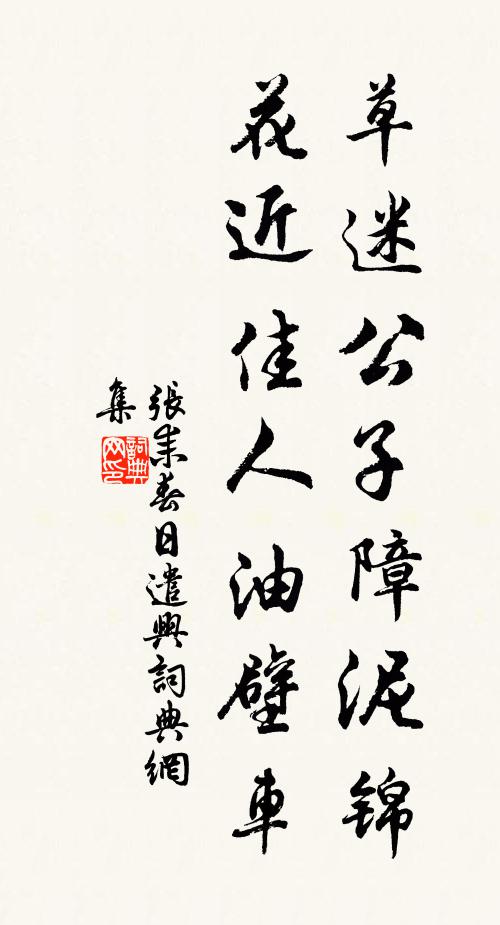 草迷公子障泥錦
花近佳人油壁車
張耒春日遣興詞典網
集
詞典網印